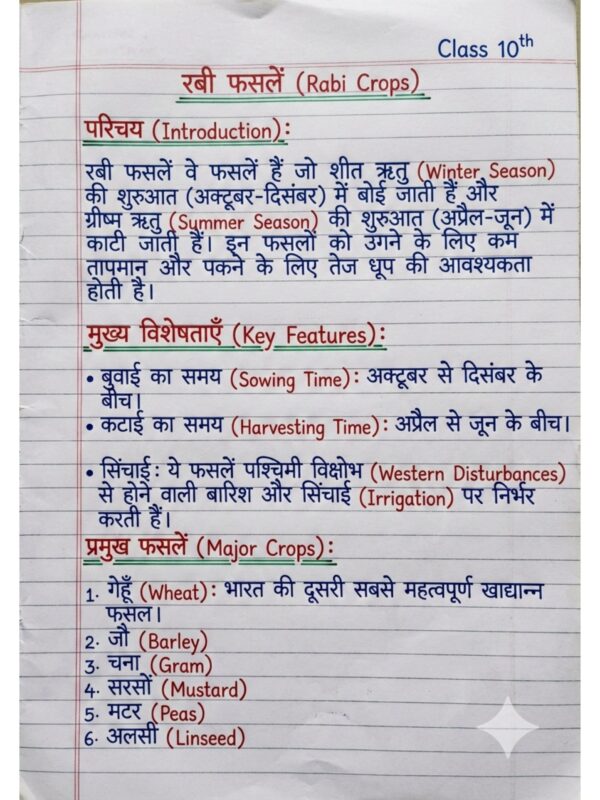 Class 10th
रबी फसलें (Rabi Crops)
परिचय (Introduction):
रबी फसलें वे फसलें हैं जो शीत ऋतु (Winter Season)
की शुरुआत (अक्टूबर-दिसंबर) में बोई जाती हैं और
ग्रीष्म ऋतु (Summer Season) की शुरुआत (अप्रैल-जून) में
काटी जाती हैं। इन फसलों को उगने के लिए कम
तापमान और पकने के लिए तेज धूप की आवश्यकता
होती है।
मुख्य विशेषताएँ (Key Features):
• बुवाई का समय (Sowing Time): अक्टूबर से दिसंबर के
बीच।
• कटाई का समय (Harvesting Time): अप्रैल से जून के बीच।
• सिंचाई: ये फसलें पश्चिमी विक्षोभ (Western Disturbances)
से होने वाली बारिश और सिंचाई (Irrigation) पर निर्भर
करती हैं।
प्रमुख फसलें (Major Crops):
1. गेहूँ (Wheat): भारत की दूसरी सबसे महत्वपूर्ण खाद्यान्न
फसल।
2. जौ (Barley)
3. चना (Gram)
4. सरसों (Mustard)
5. मटर (Peas)
6. अलसी (Linseed)